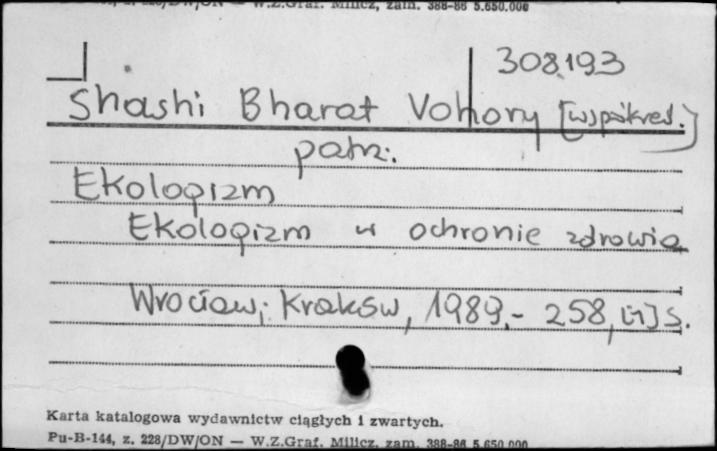 W.Z.Graf. Milicz, zam. 388-86 5.650.000
308.193
Shashi Bharat Vohory [współred.]
patrz:
Ekologizm
Ekologizm w ochronie zdrowia
Wrocław; Kraków, 1989.- 258, [1] s.
Karta katalogowa wydawnictw ciągłych i zwartych.
Pu-B-144, z. 228/DW/ON — W.Z.Graf. Milicz, zam. 388-86 5.650.000